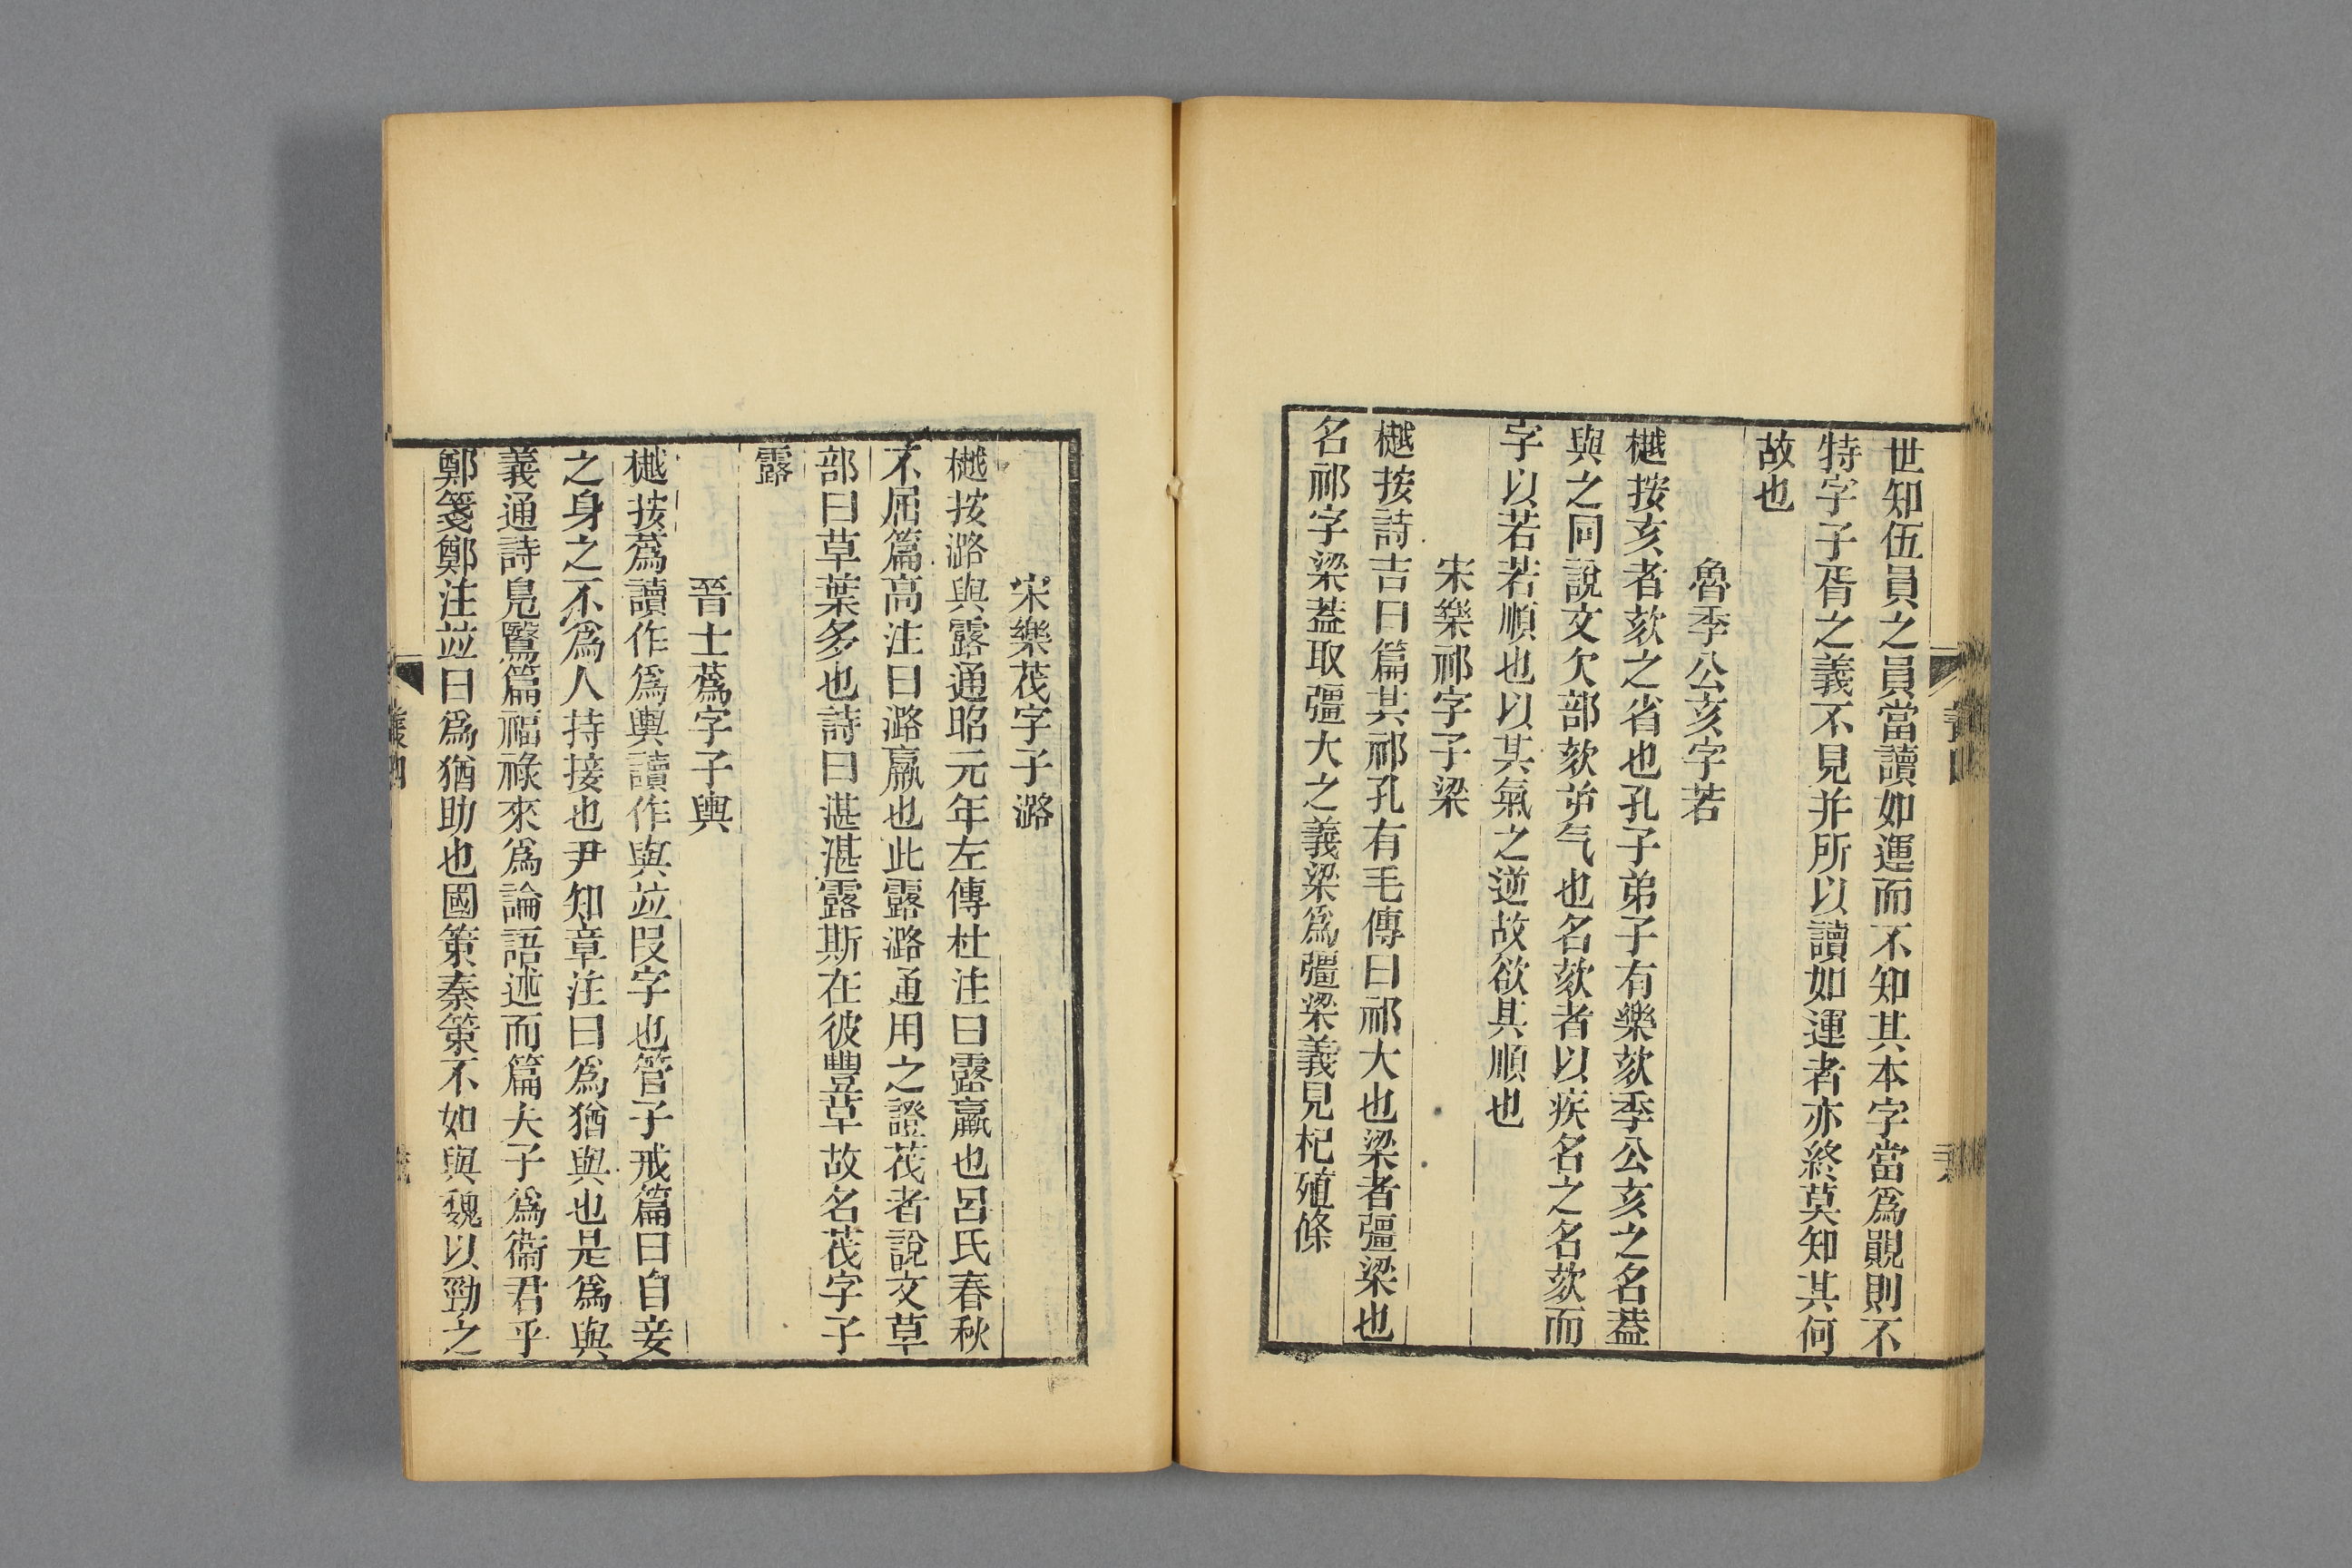 世知伍員之員當讀如運而不知其本字當爲䚋則不
特字子胥之義不見并所以讀如運者亦終莫知其何
故也
魯季公亥字若
樾按亥者欬之省也孔子弟子有樂欬季公亥之名葢
與之同說文欠部欬屰气也名欬者以疾名之名欬而
字以若若順也以其氣之逆故欲其順也
宋樂祁字子梁
樾按詩吉日篇其祁孔有毛傳曰祁大也梁者彊梁也
名祁字梁葢取彊大之義梁爲彊梁義見杞殖條
宋樂茷字子潞
樾按潞與露通昭元年左傳杜注曰露羸也呂氏春秋
不屈篇高注曰潞羸也此露潞通用之證茷者說文草
部曰草葉多也詩曰湛湛露斯在彼豐草故名茷字子
露
晉士蔿字子輿
樾按蔿讀作爲輿讀作與竝叚字也管子戒篇曰自妾
之身之不爲人持接也尹知章注曰爲猶與也是爲與
義通詩鳧鷖篇福祿來爲論語述而篇夫子爲衞君乎
鄭箋鄭注竝曰爲猶助也國策秦策不如與魏以勁之